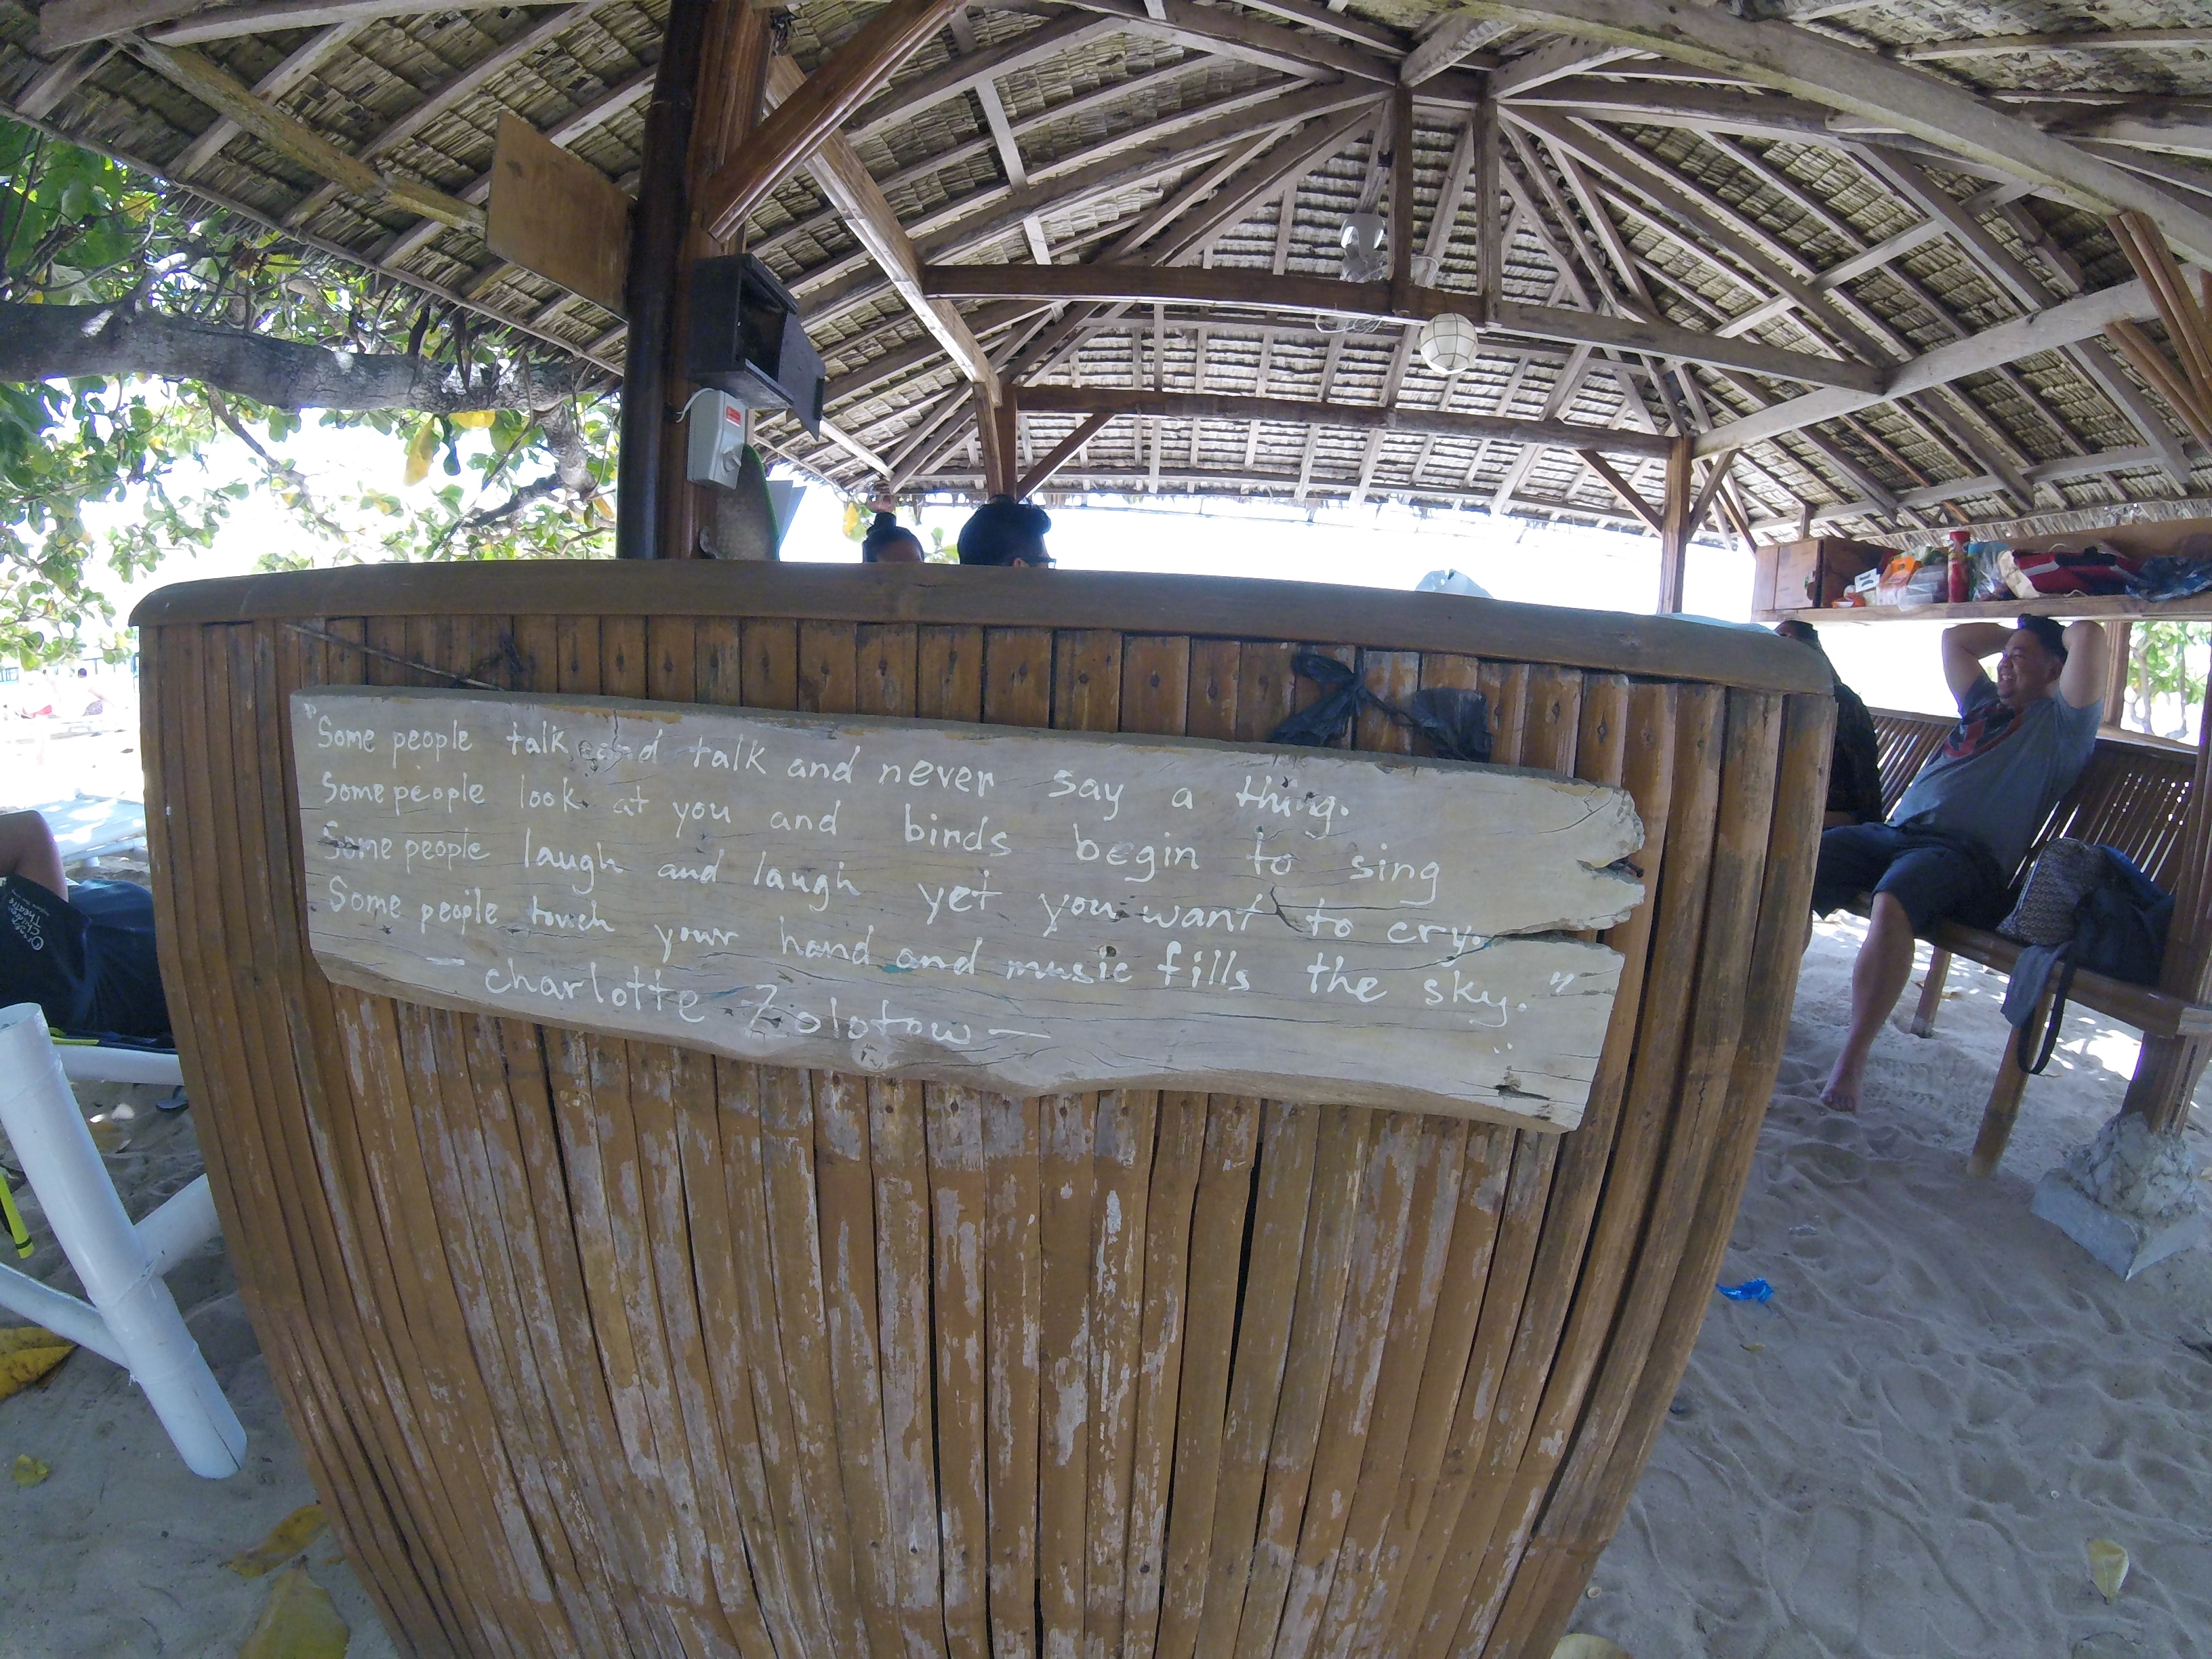 "Some people talk and talk and never say a thing.
Some people look at you and birds begin to sing
Some people laugh and laugh yet you want to cry.
Some people touch your hand and music fills the sky."
— Charlotte Zolotow —